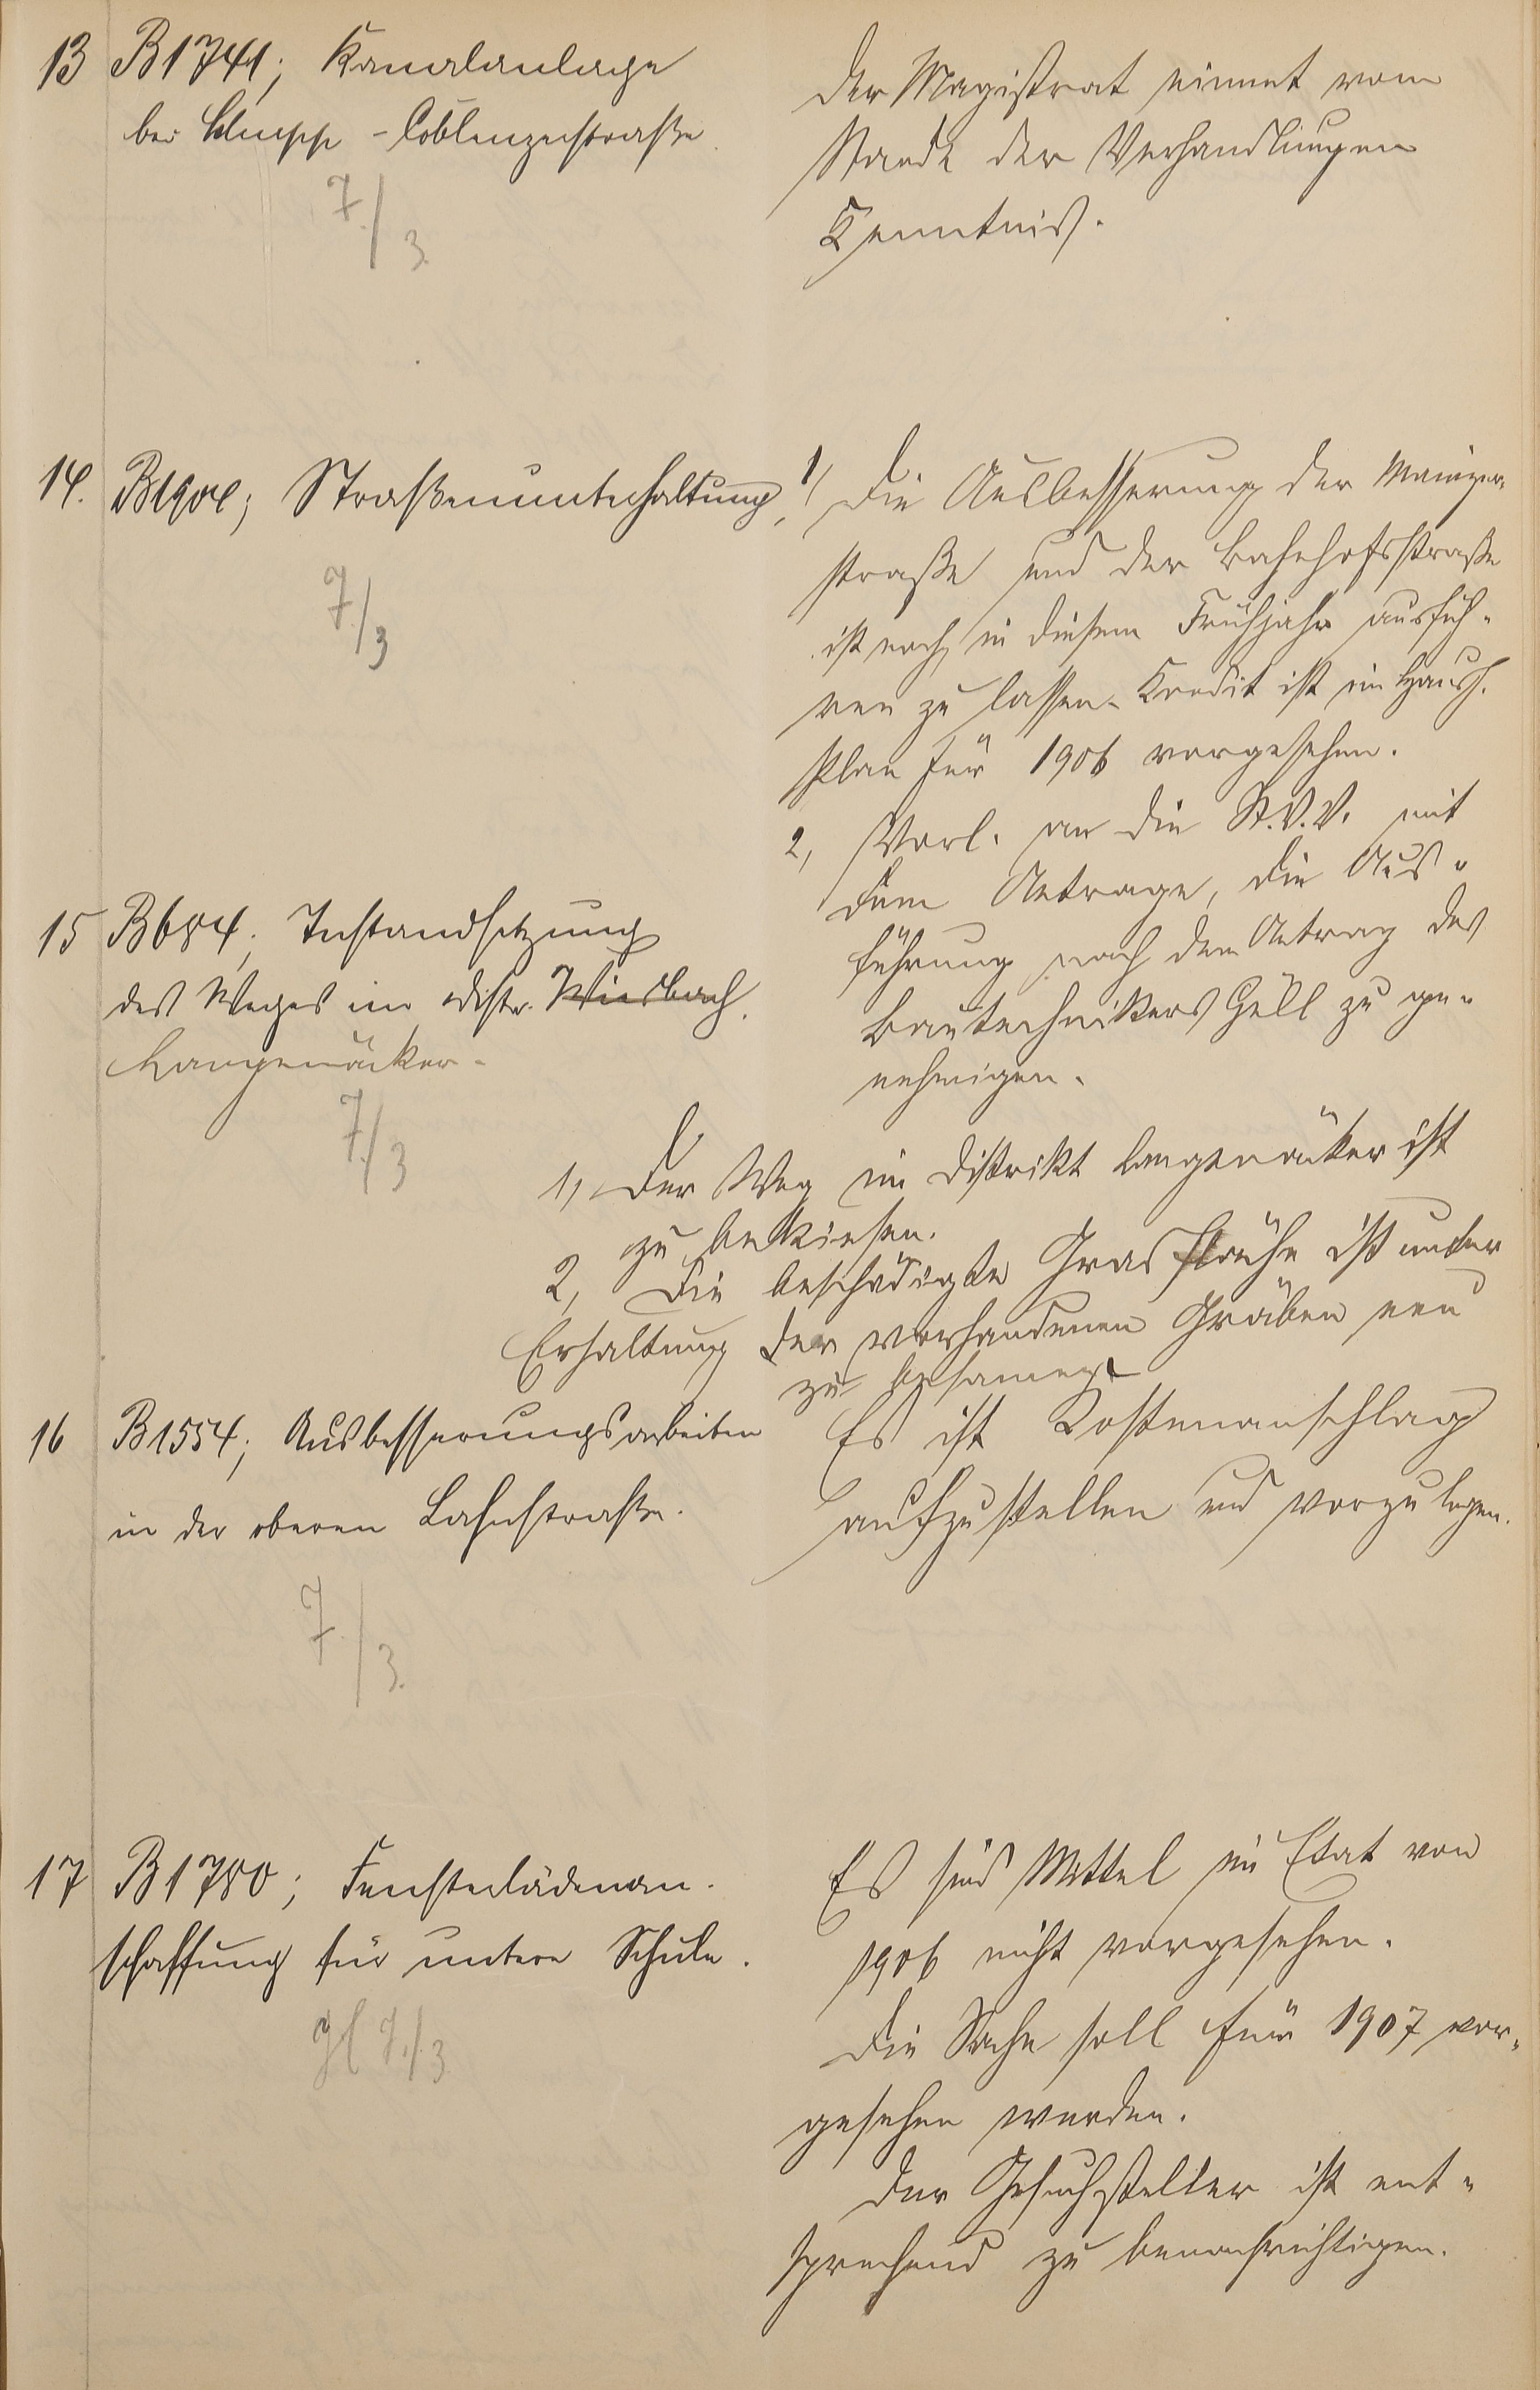 13 B1741; Kanalanlage
bei - Coblenzerstraße.
7./3.
Der Magistrat nimmt vom
Stande der Verhandlungen
Kenntnis.
14. B1904; Straßenunterhaltung,
7./3
1/ Die Ausbesserung der Mainzer-
straße und der Bahnhofsstraße
ist noch in diesem Frühjahr ausfüh-
ren zu lassen. Kredit ist im Haush.
Plan für 1906 vorgesehen.
2, Vorl. an die St.V.V. mit
dem Antrage, die Aus-
führung nach dem Antrag des
Bautechnikers Gell zu ge-
nehmigen.
15 B684; Instandsetzung
des Weges im Distr. Wiesbach.
Langenäcker.
7./3
1, Der Weg im Distrikt Langenäcker ist
zu bekiesen.
2, Die beschädigte Grasfläche ist unter
Erhaltung der vorhandenen Gräben neu
zu besamen
16 B1554; Ausbesserungsarbeiten
in der oberen Lahnstraße.
7./3.
Es ist Kostenanschlag
aufzustellen und vorzulegen.
17 B1780; Fensterlädenan-
schaffung für untere Schule.
7./.3
Es sind Mittel im Etat von
1906 nicht vorgesehen.
Die Sache soll für 1907 vor-
gesehen werden.
Der Gesuchsteller ist ent-
sprechend zu benachrichtigen.